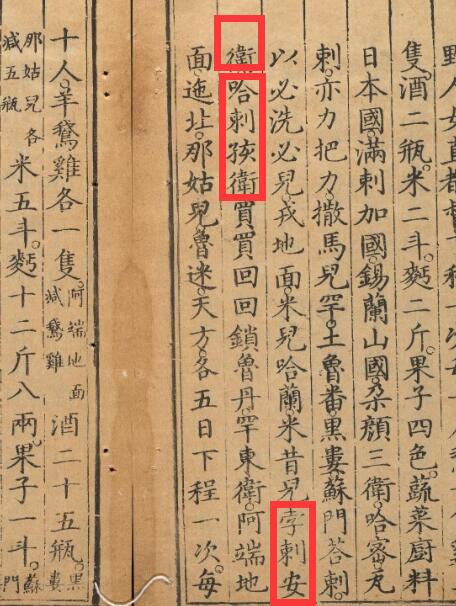 野人女直都督
隻酒二瓶米二斗麪二斤果子四色蔬菜厨料
日本國滿剌加國錫蘭山國朶顔三衛哈密瓦
剌亦力把力撒馬兒罕土魯番黑婁蘇門荅剌
以必洗必兒戎地面米兒哈蘭米昔兒孛剌安
衛哈剌孩衛買買回回鎖魯丹罕東衛阿端地
面迤北那姑兒魯迷天方各五日下程一次每
十人羊鵝雞各一隻阿端地面減鵝雞酒二十五瓶黑婁
那姑兒各減五瓶米五斗麪十二斤八兩果子一斗蘇門